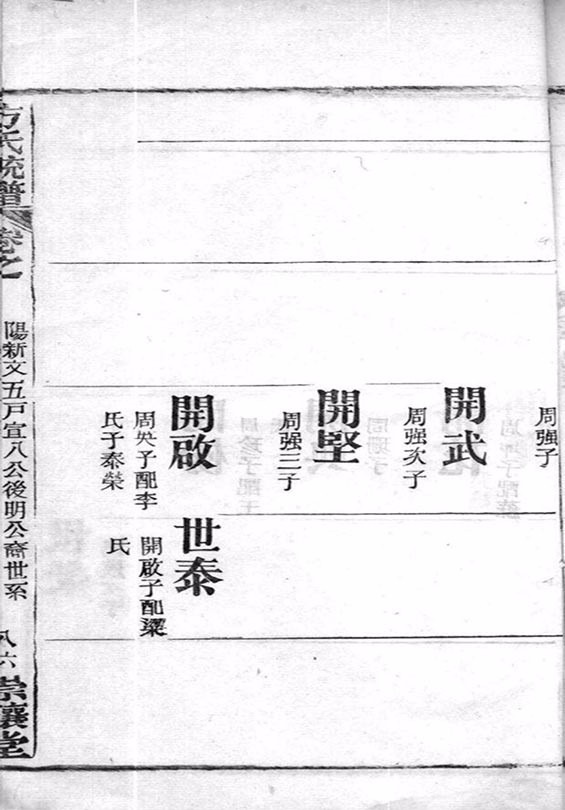 周強子
開武
周强次子
開堅
周强三子
開啟
周英子配李
氏子泰榮
世泰
開啟子配梁
氏
方氏統譜
卷之
陽新文五戸宣八公後明公裔世系
八六
崇讓堂